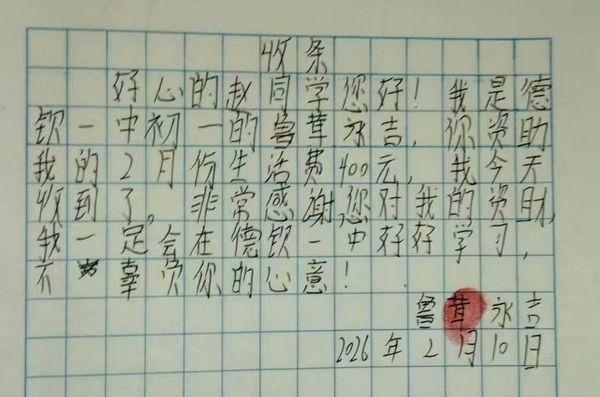 收条
好心的赵同学您好！我是德
钦一中初一的鲁茸永吉，你资助
我的2月份生活费400元，我今天
收到了。非常感谢您对我的资财，
我一定会在德钦一中好好学习，
不辜负你的心意！
鲁茸永吉
2026年2月10日